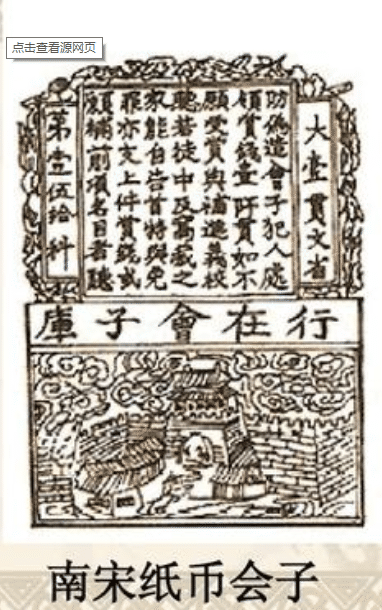 点击查看源网页
大壹貫文省
偽造會子犯人處
賞錢壹阡貫如不
願受賞與補進義校
聽若徒中及窩藏之
家能自告首特與免
罪亦支上件賞錢或
願補前項名目者聽
第壹伍拾料
行在會子庫
南宋纸币会子